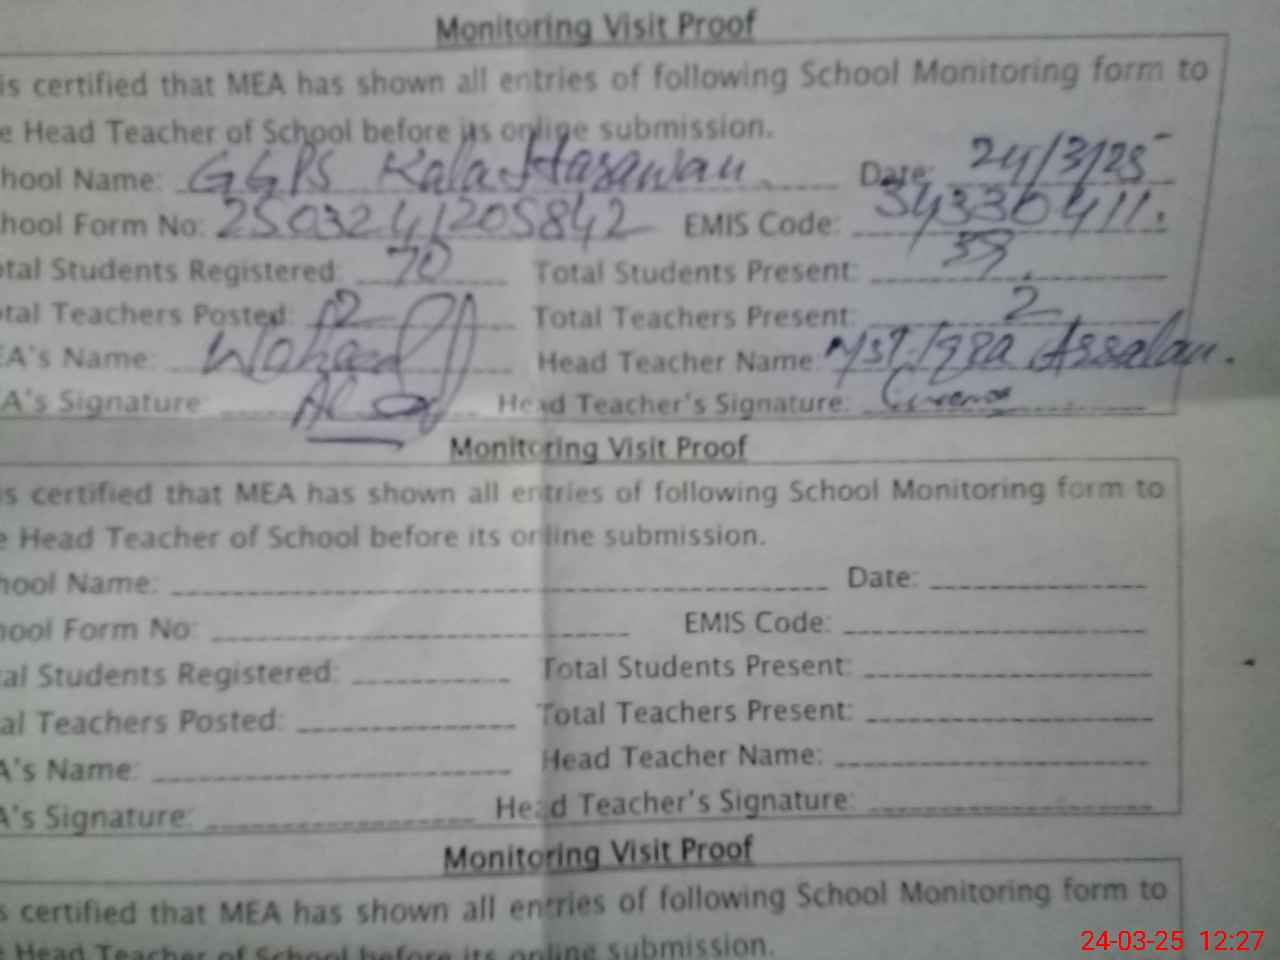 Monitoring Visit Proof
is certified that MEA has shown all entries of following School Monitoring form to
e Head Teacher of School before its online submission.
hool Name: GGPS Kala Hasawan Date: 24/3/25
hool Form No: 2503241205842 EMIS Code: 34330411
otal Students Registered: 70 Total Students Present: 39
otal Teachers Posted: 2 Total Teachers Present: 2
EA's Name: Waheed Head Teacher Name: Mst. Iqra Assalam.
A's Signature: Head Teacher's Signature:
Monitoring Visit Proof
s certified that MEA has shown all entries of following School Monitoring form to
e Head Teacher of School before its online submission.
hool Name: Date:
hool Form No: EMIS Code:
al Students Registered: Total Students Present:
al Teachers Posted: Total Teachers Present:
A's Name: Head Teacher Name:
A's Signature: Head Teacher's Signature:
Monitoring Visit Proof
s certified that MEA has shown all entries of following School Monitoring form to
e Head Teacher of School before its online submission.
24-03-25 12:27